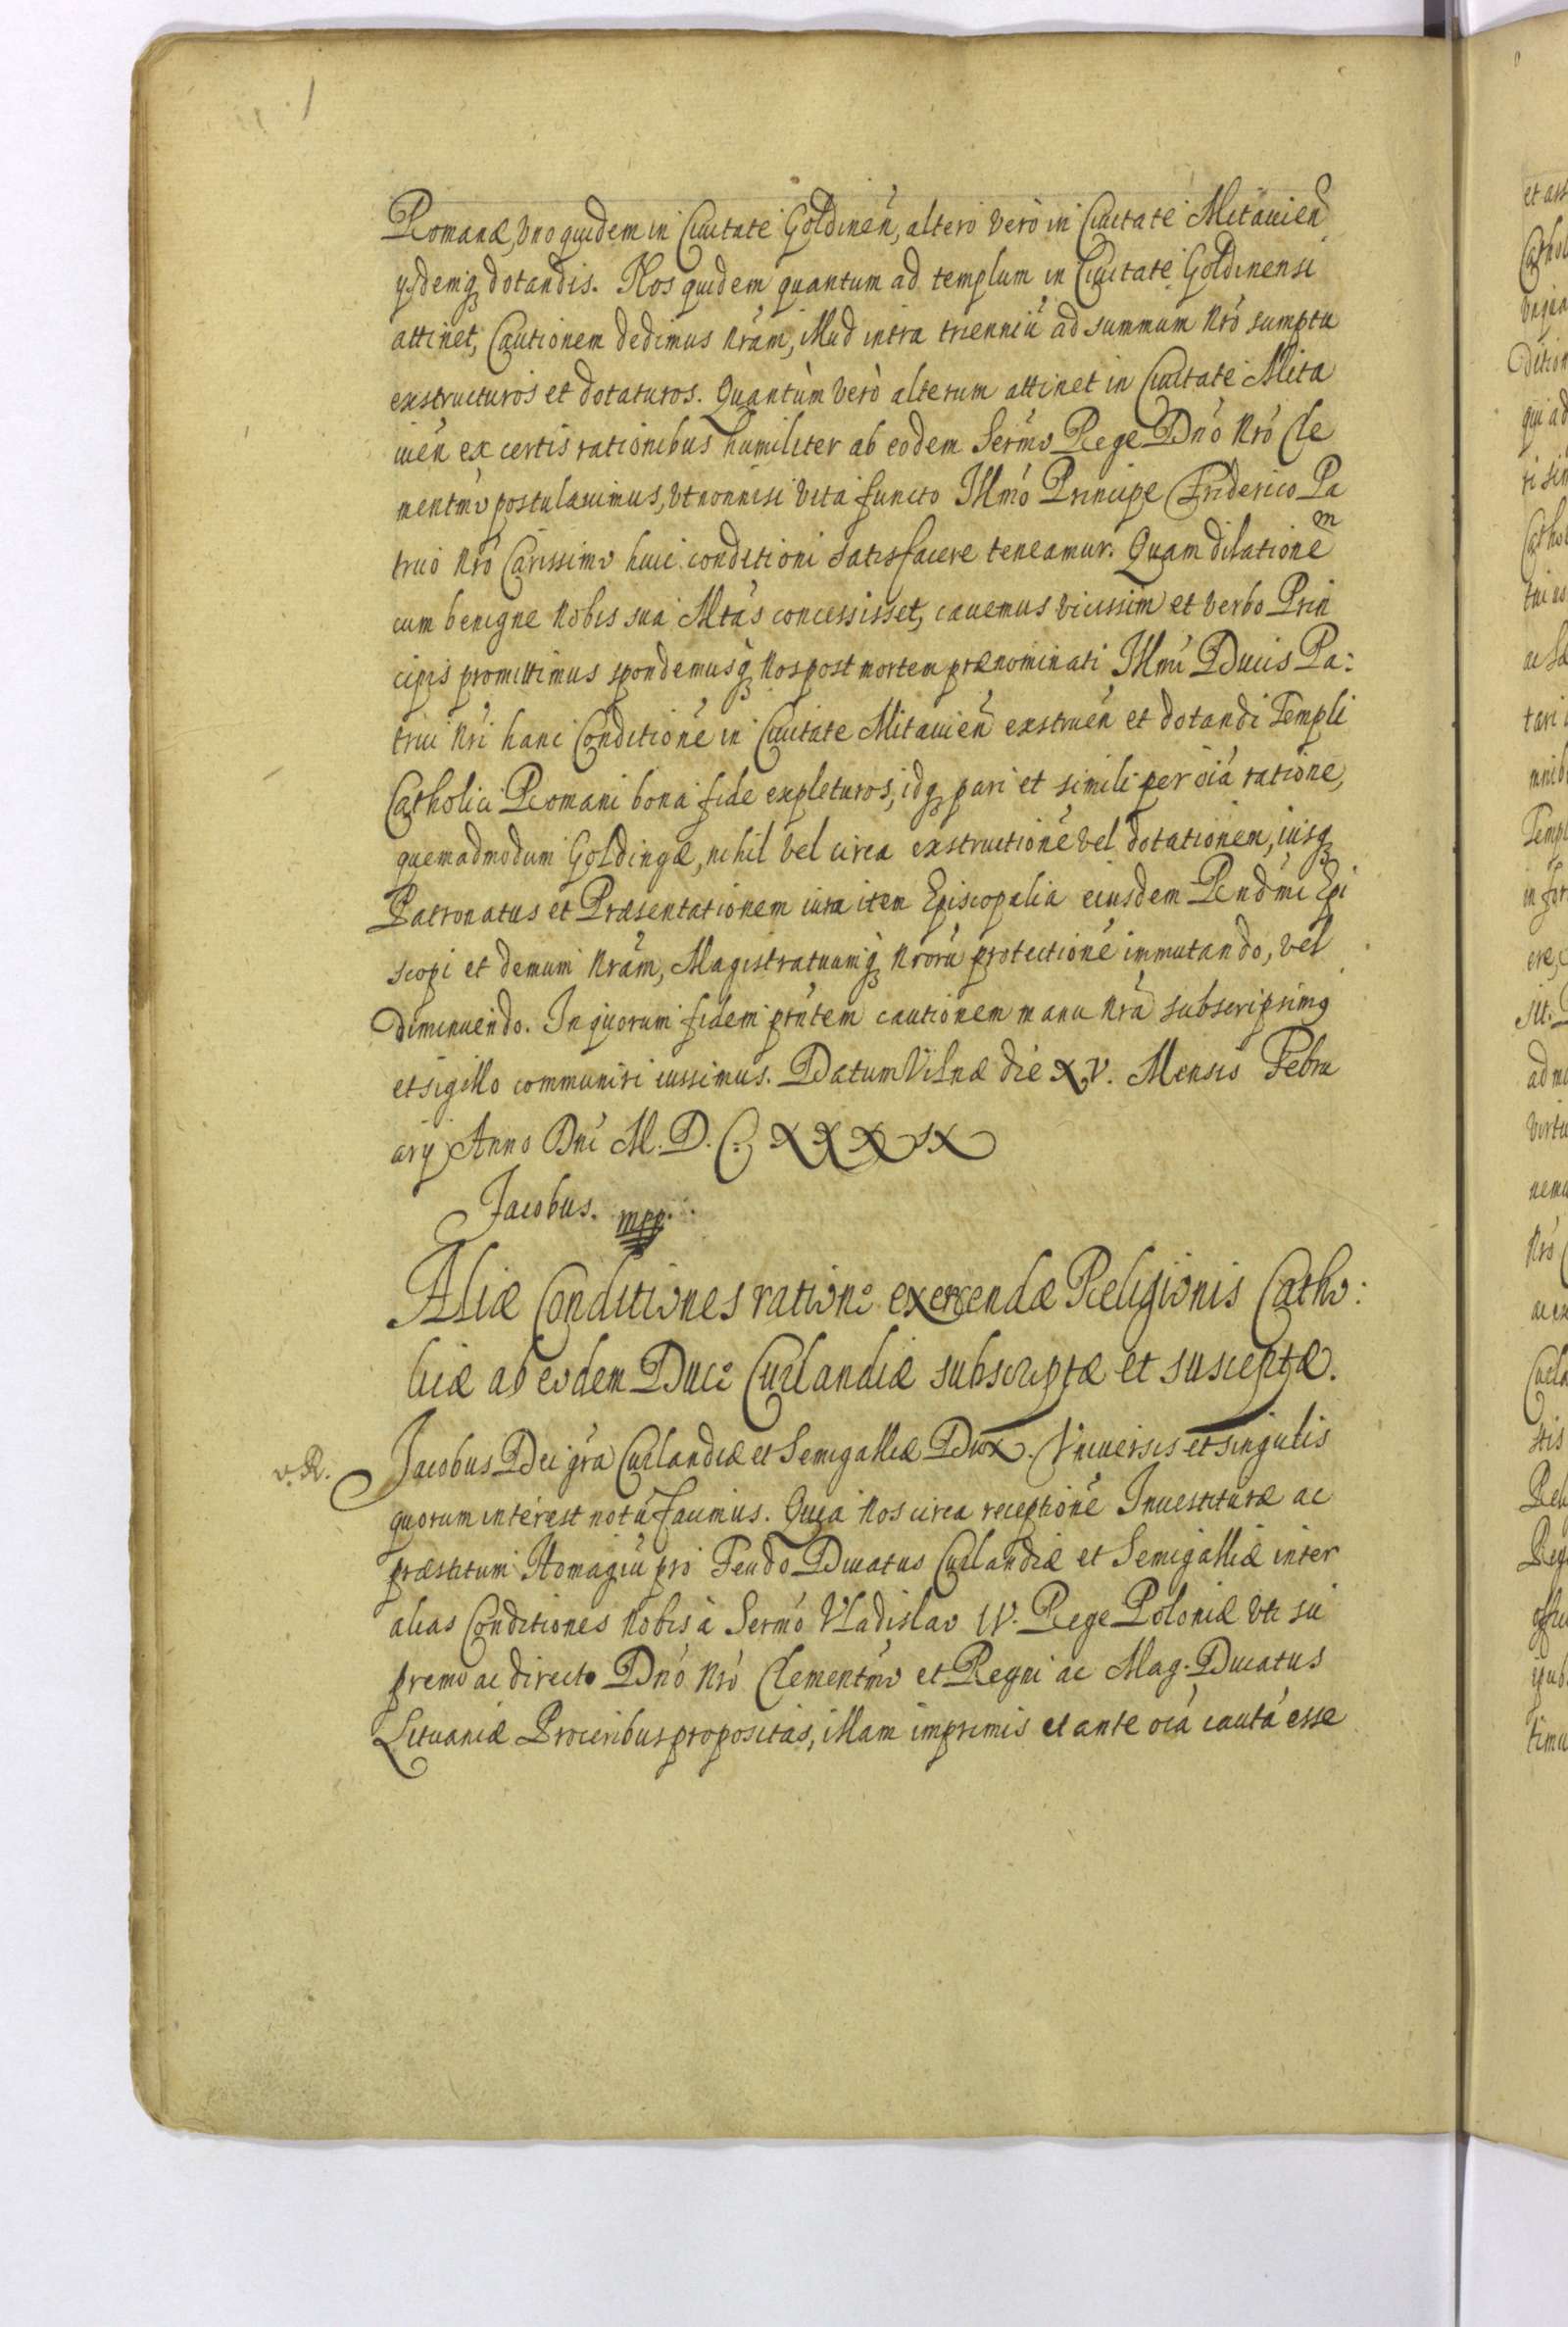 Romanæ, vno quidem in Ciuitate Goldinen̄, altero verò in Ciuitate Mitauien̄
ysdemq́ꝫ dotandis. Nos quidem quantum ad templum in Ciuitate Goldinensi
attinet, Cautionem dedimus nr̃am, illud intra trienniũ ad summum nr̃o sumptu
exstructuros et dotaturos. Quantùm verò alterum attinet in Ciuitate Mita
uien̄ ex certis rationibus humiliter ab eodem Serm̃o Rege Dñ̃o Nr̃o Cle
mentm̃o postulauimus, vt nonnisi vita functo Illm̃o Principe Friderico Pa
truo nr̃o Carissimo huic conditioni satisfacere teneamur. Quam dilationem
cum benigne nobis sua Mtãs concessisset, cauemus vicissim et verbo Prin
cipis promittimus spondemusq́ꝫ nos post mortem prænominati Illmĩ Ducis Pa:
trui nr̃i hanc Conditionẽ in Ciuitate Mitauien̄ exstruen̄ et dotandi Templi
Catholici Romani bona fide expleturos, idq́ꝫ pari et simili per oĩa ratione,
quemadmodum Goldingæ, nihil vel circa exstructionẽ vel dotationem, iusq́ꝫ
Patronatus et Præsentationem iura item Episcopalia eiusdem Rndm̃i Epi
scopi et demum nr̃am, Magistratuumq́ꝫ nr̃orũ protectionẽ immutando, vel
diminuendo. In quorum fidem pr̃ntem cautionem manu nr̃a subscripsimꝰ
et sigillo communiri iussimus. Datum Vilnæ die XV. Mensis Febru
arij Anno Dñi M.D.C. XXXIX
Jacobus. mpp.
Aliæ Conditiones ratione exercendæ Religionis Catho:
licæ ab eodem Duce Curlandiæ subscriptæ et susceptæ.
v. R. Jacobus Dei gr̃a Curlandiæ et Semigalliæ Dux. Vniuersis et singulis
quorum interest notũ facimus. Quia nos circa receptionẽ Inuestituræ ac
præstitum Homagiũ pro Feudo Ducatus Curlandiæ et Semigalliæ inter
alias Conditiones nobis à Serm̃o Vladislao IV. Rege Poloniæ vti su
premo ac directo Dñ̃o Nr̃o Clementm̃o et Regni ac Mag. Ducatus
Lituaniæ Proceribus propositas, illam imprimis et ante oĩa cautã esse